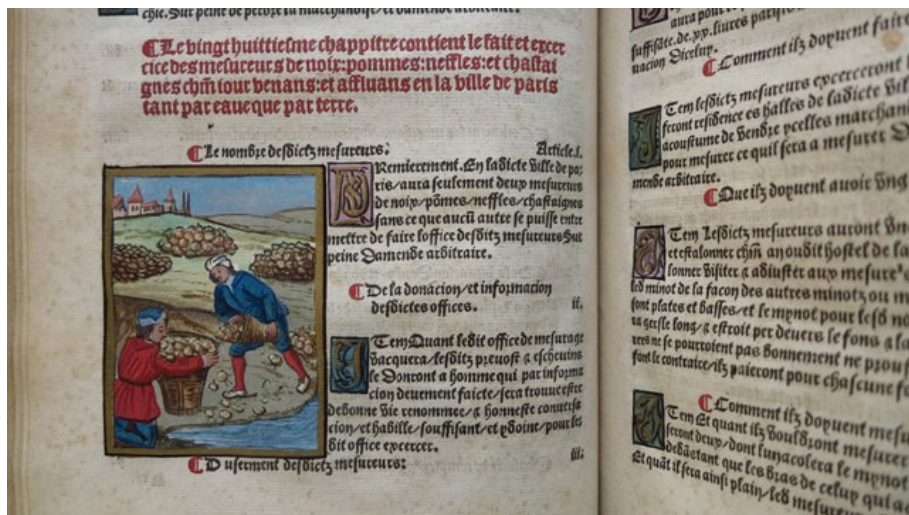 chie. Sur peine de perdre la marchandise, et damende arbitraire.
¶Le vingthuittiesme chappitre contient le fait et exer
cice des mesureurs de noix: pommes: neffles: et chastai
gnes chm̄ iour venans: et affluans en la ville de paris
tant par eaue que par terre.
¶Le nombre desdictz mesureurs: Article.i.
PRemierement. En ladicte ville de pa
ris/aura seulement deux mesureurs
de noix/põmes/neffles/chastaignes
sans ce que aucũ autre se puisse entre
mettre de faire loffice desditz mesureurs Sur
peine Damende arbitraire.
¶De la donacion/et informacion
desdictes offices. ii.
ITem Quant ledit office de mesurage
vacquera/lesditz preuost & escheuins
le Donront a homme qui par informa
cion deuement faicte/sera trouue estre
de bonne vie renommee/& honneste conuersa
cion/et habille/souffisant/et ydoine/pour les
dit office exercer.
¶Du serment desdictz mesureurs: iii.
aura pour
suffisãte.de.xx.liures parisi
nacion Dicelup.
¶Comment ilz doyuent faire
ITem lesdictz mesureurs exerceront
feront residence es halles de ladicte vil
acoustume de vendre ycelles marchan
pour mesurer ce quil sera a mesurer
mende arbitraire.
¶Que ilz doyuent auoir vng
ITem Lesdictz mesureurs auront vng
et estalonner chm̄ an oudit hostel de la
lonner visiter & adiuster aux mesure's
led minot de la facon des autres minotz ou m
sont plates et basses/et le mynot pour lesd no
long/& estroit per deuers le fons a la
ters ne se pourroient pas bonnement ne prouf
font le contraire/ilz paieront pour chascune fo
¶Comment ilz doyuent mesu
ITem Et quant ilz vouldront mesurer
seront deux/dont lun acolera le mynot
debastant que les bras de celuy qui a
Et quãt il sera ainsi plain/lesd mesure